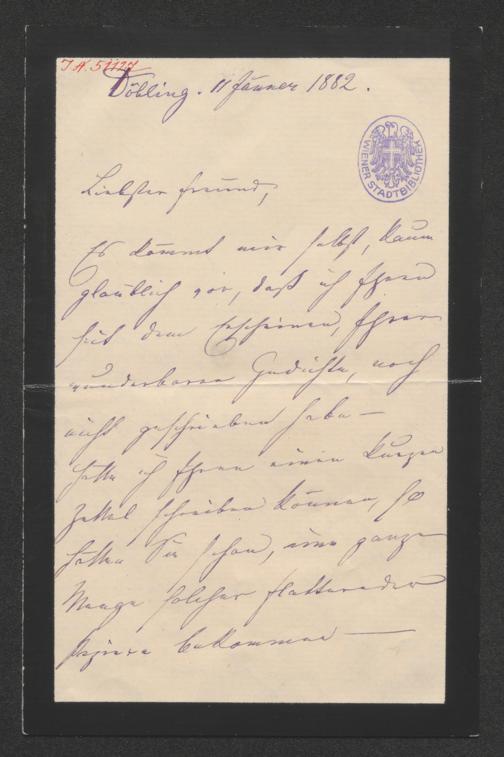 J.N. 51117
Döbling. 11 Jänner 1882.
WIENER STADTBIBLIOTHEK
Liebster Freund,
Es kommt mir selbst, kaum
glaublich vor, daß ich Ihnen
seit dem Erscheinen, Ihrer
wunderbaren Gedichte, noch
nicht geschrieben habe —
Hätte ich Ihnen einen kurzen
Zettel schreiben können, so
hätten Sie schon, eine ganze
Menge solcher flatternder
Papiere bekommen —